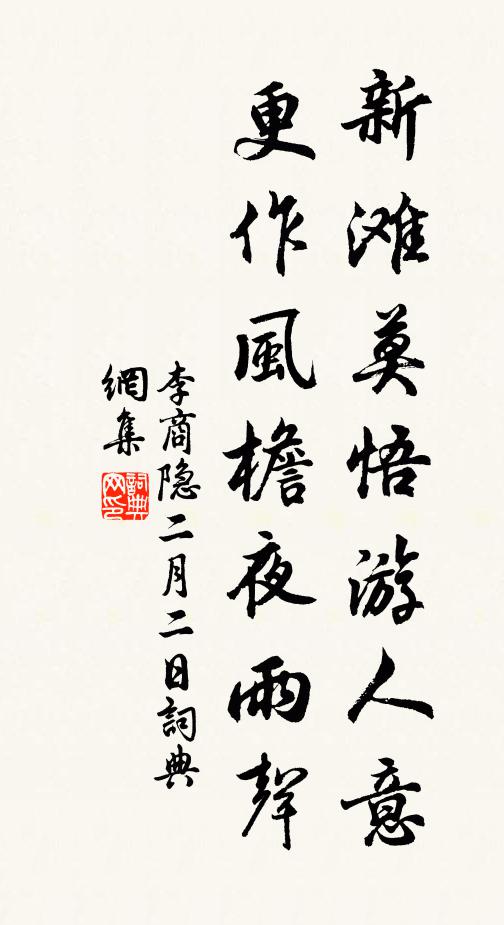 新滩莫悟游人意
更作風檐夜雨聲
李商隐二月二日詞典
網集
詞典
网印